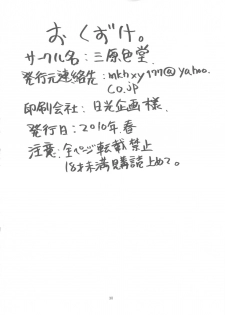 おくづけ。
サークル名：三原色堂
発行元連絡先：mkhxy177@yahoo.
co.jp
印刷会社：日光企画様
発行日：2010年 春
注意：全ページ転載禁止
18才未満購読止めて。